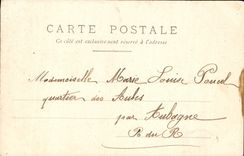 CARTE POSTALE
Ce côté est exclusivement réservé à l'adresse
Mademoiselle Marie Louise
quartier des Aules
par Aubagne
B. du R